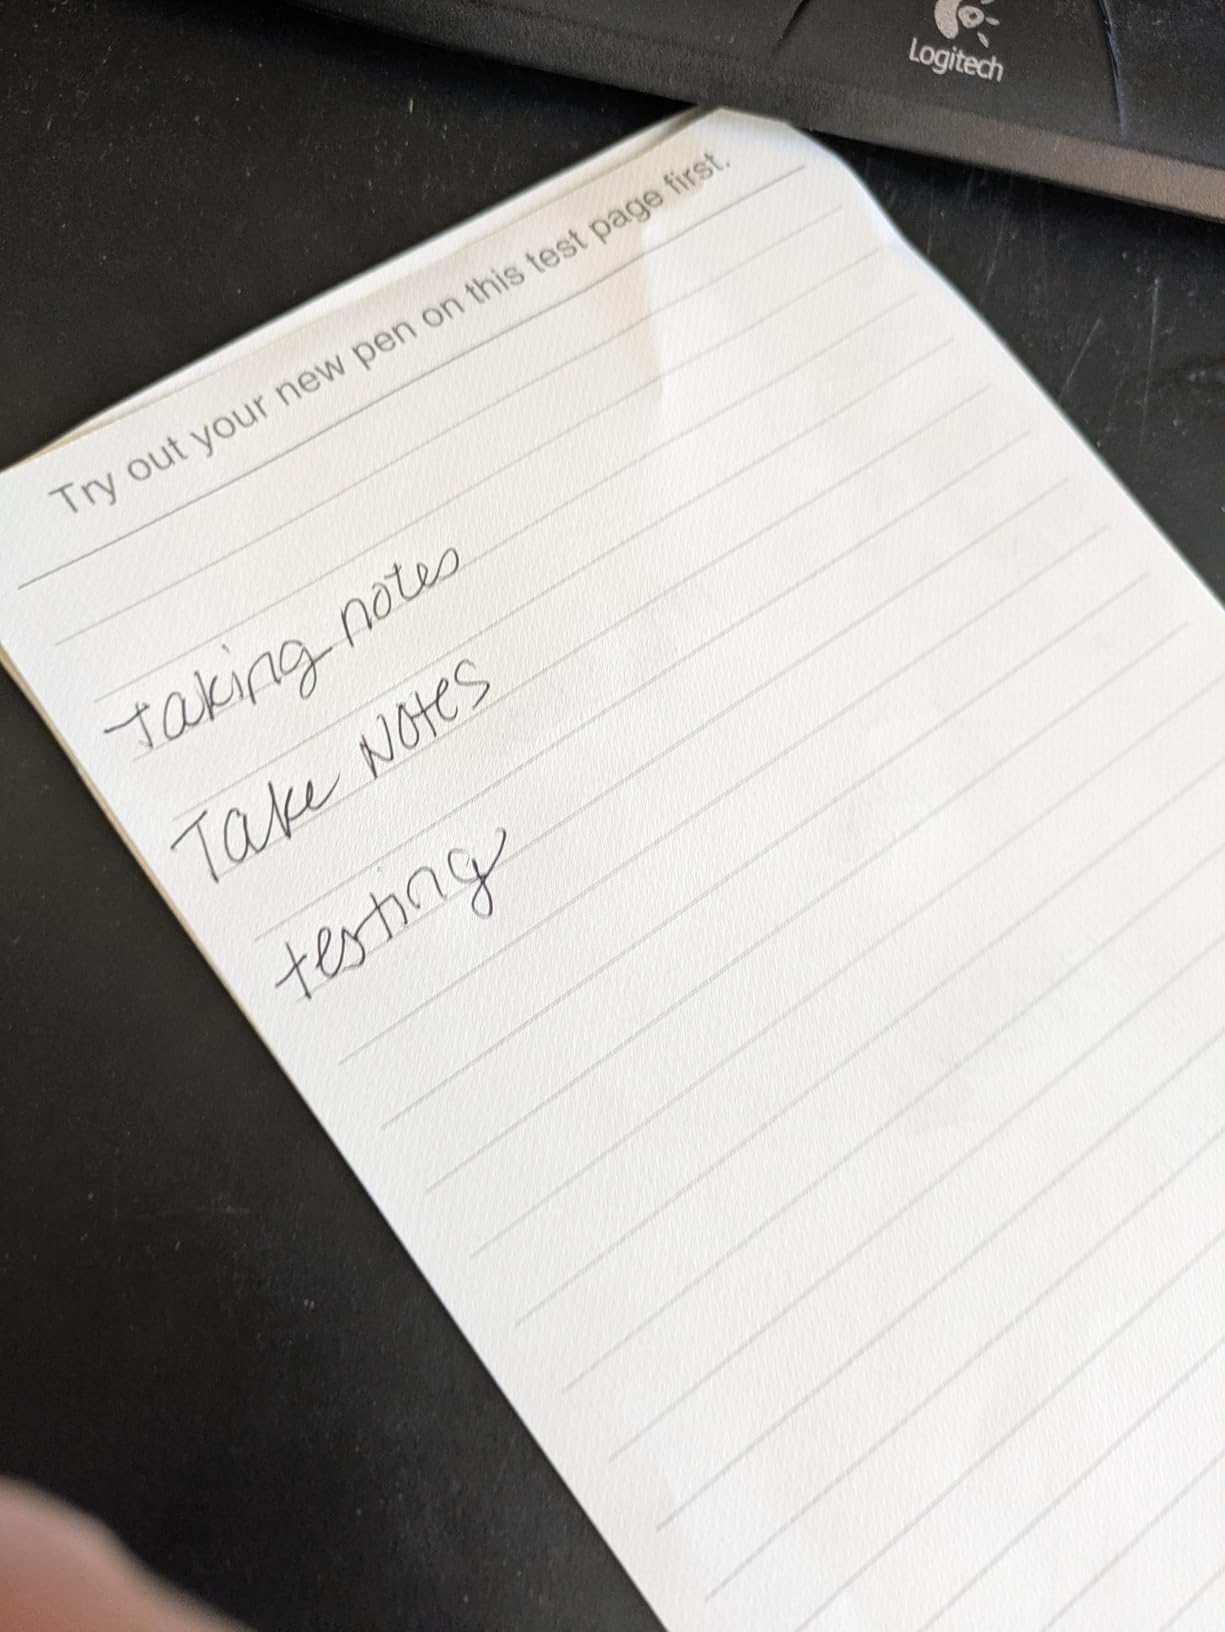 Logitech
Try out your new pen on this test page first.
taking notes
Take Notes
testing